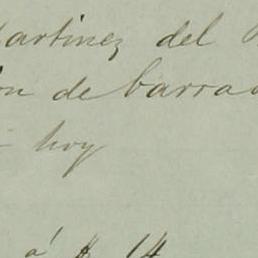 Martinez del
on de barra
hoy
á $ 14